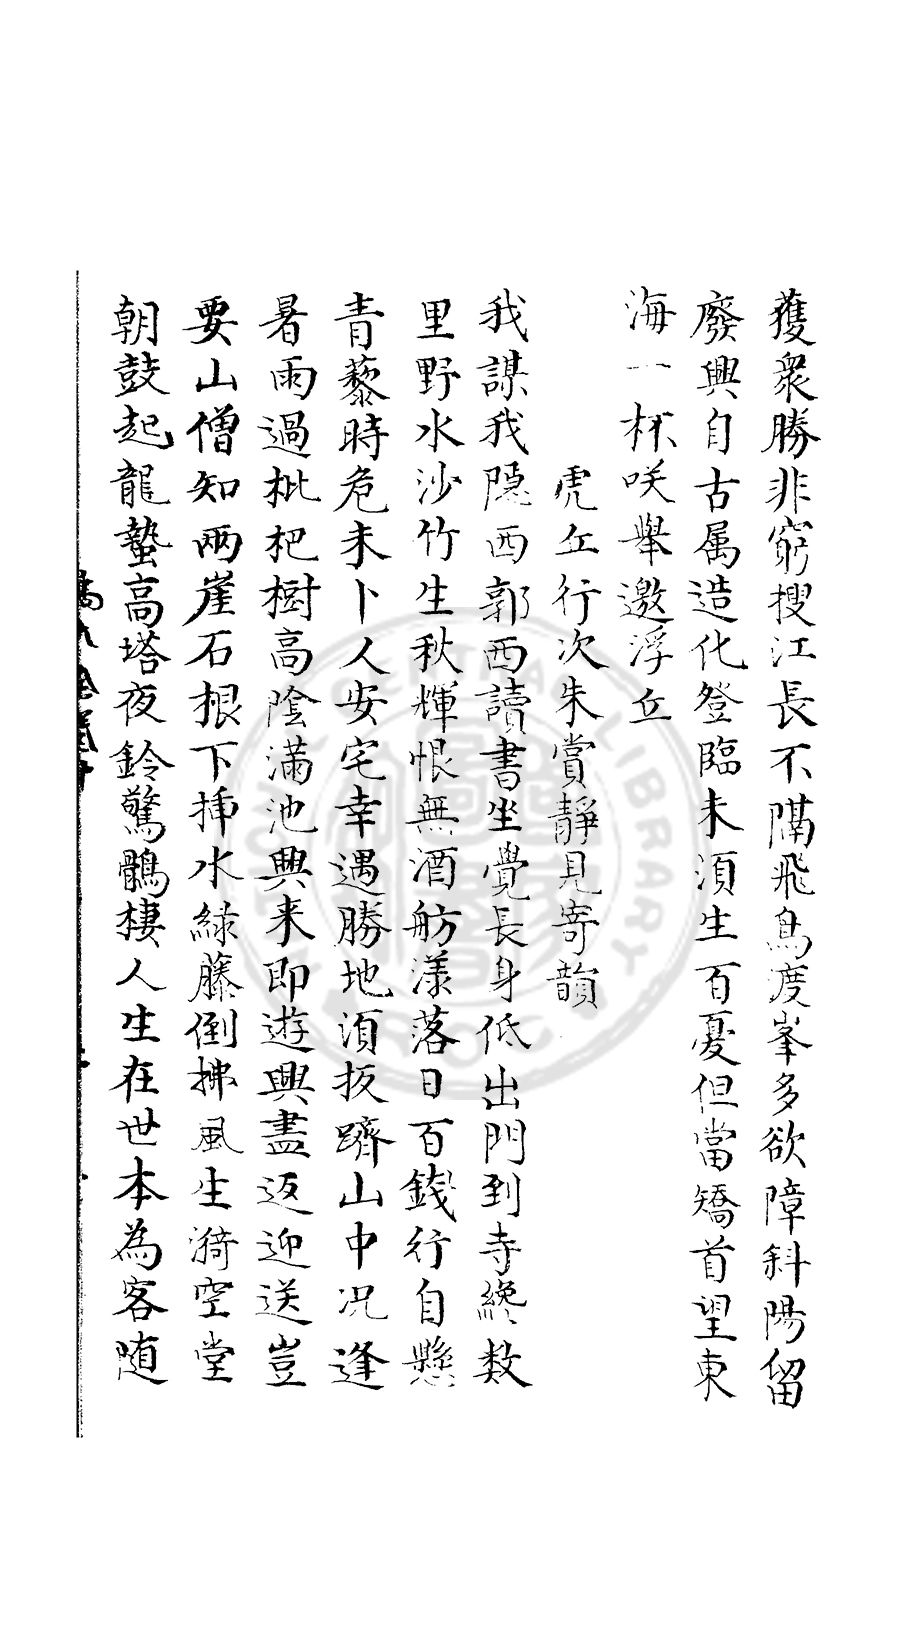 獲衆勝非窮搜江長不隔飛鳥渡峯多欲障斜陽留
廢興自古属造化登臨未須生百憂但當矯首望東
海一杯咲舉邀浮丘
虎丘行次朱賞靜見寄韻
我謀我隱西郭西讀書坐覺長身低出門到寺纔数
里野水沙竹生秋輝恨無酒舫漾落日百錢行自懸
青藜時危未卜人安宅幸遇勝地須扳躋山中况逢
暑雨過枇杷樹高陰滿池興来即遊興盡返迎送豈
要山僧知兩崖石根下插水緑藤倒拂風生漪空堂
朝鼓起龍蟄高塔夜鈴驚鶻棲人生在世本為客随